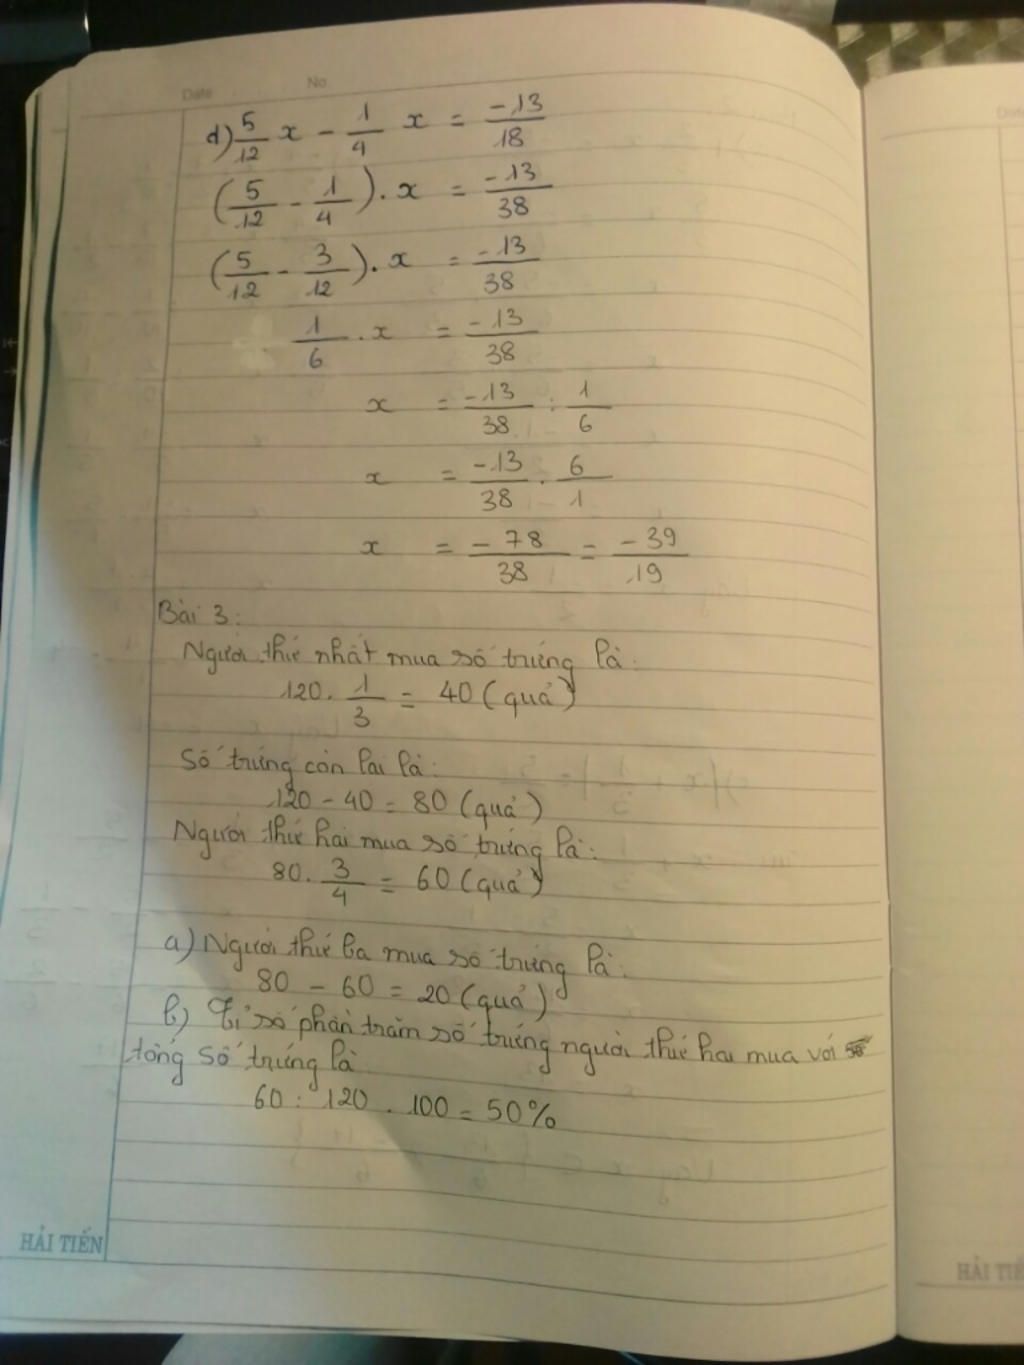 Date No
d) 5/12 x - 1/4 x = -13/18
(5/12 - 1/4) . x = -13/38
(5/12 - 3/12) . x = -13/38
1/6 . x = -13/38
x = -13/38 : 1/6
x = -13/38 . 6/1
x = -78/38 = -39/19
Bài 3:
Người thứ nhất mua số trứng là:
120 . 1/3 = 40 (quả)
Số trứng còn lại là:
120 - 40 = 80 (quả)
Người thứ hai mua số trứng là:
80 . 3/4 = 60 (quả)
a) Người thứ ba mua số trứng là:
80 - 60 = 20 (quả)
b) Tỉ số phần trăm số trứng người thứ hai mua với
tổng số trứng là
60 : 120 . 100 = 50%
HẢI TIẾN
Date
HẢI TIẾ